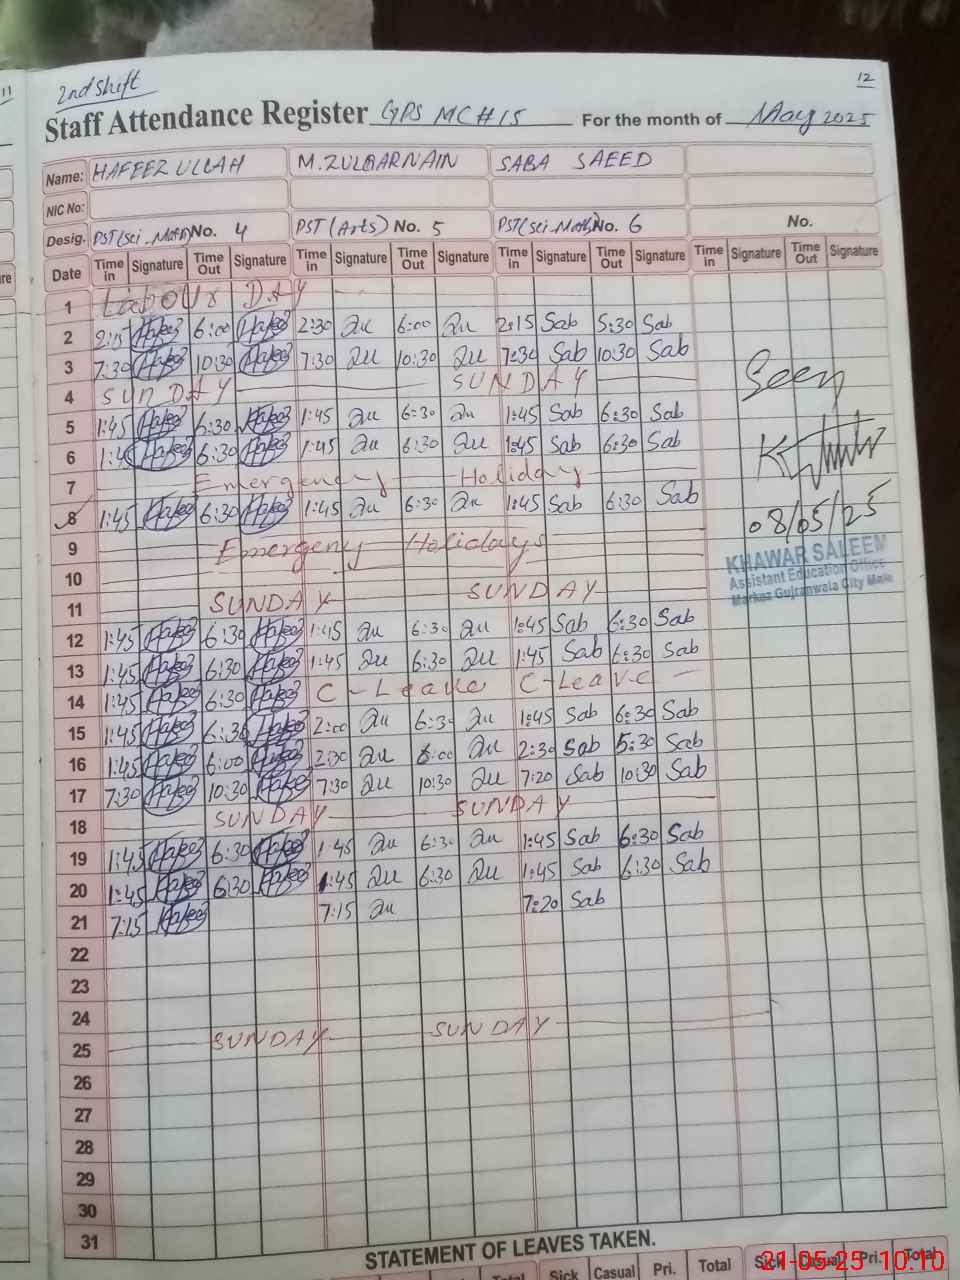 11
2nd Shift
12
Staff Attendance Register GPS MC#15 For the month of May 2025
Name: HAFEEZ ULLAH M. ZULQARNAIN SABA SAEED
NIC No:
Desig. PST(Sci-Math) No. 4 PST (Arts) No. 5 PST(Sci-Math) No. 6 No.
Date Time in Signature Time Out Signature Time in Signature Time Out Signature Time in Signature Time Out Signature Time in Signature Time Out Signature
1 Labour DAY
2 2:15 Hafeez 6:00 Hafeez 2:30 6:00 2:15 Sab 5:30 Sab
3 7:30 Hafeez 10:30 Hafeez 7:30 10:30 7:30 Sab 10:30 Sab
4 SUNDAY SUNDAY
Seen
5 1:45 Hafeez 6:30 Hafeez 1:45 6:30 1:45 Sab 6:30 Sab
6 1:45 Hafeez 6:30 Hafeez 1:45 6:30 1:45 Sab 6:30 Sab
7 Emergency Holiday
8 1:45 Hafeez 6:30 Hafeez 1:45 6:30 1:45 Sab 6:30 Sab
08/05/25
9 Emergency Holidays
KHAWAR SALEEM
Assistant Education Office
Markaz Gujranwala City Male
10
11 SUNDAY SUNDAY
12 1:45 Hafeez 6:30 Hafeez 1:45 6:30 1:45 Sab 6:30 Sab
13 1:45 Hafeez 6:30 Hafeez 1:45 6:30 1:45 Sab 6:30 Sab
14 1:45 Hafeez 6:30 Hafeez C-Leave C-Leave
15 1:45 Hafeez 6:30 Hafeez 2:00 6:30 1:45 Sab 6:30 Sab
16 1:45 Hafeez 6:00 Hafeez 2:30 6:00 2:30 Sab 5:30 Sab
17 7:30 Hafeez 10:30 Hafeez 7:30 10:30 7:20 Sab 10:30 Sab
18 SUNDAY SUNDAY
19 1:45 Hafeez 6:30 Hafeez 1:45 6:30 1:45 Sab 6:30 Sab
20 1:45 Hafeez 6:30 Hafeez 1:45 6:30 1:45 Sab 6:30 Sab
21 7:15 Hafeez 7:15 7:20 Sab
22
23
24
25 SUNDAY SUNDAY
26
27
28
29
30
31
STATEMENT OF LEAVES TAKEN.
Total Sick Casual Pri. Total Sick Casual Pri. Total
21-05-25 10:10